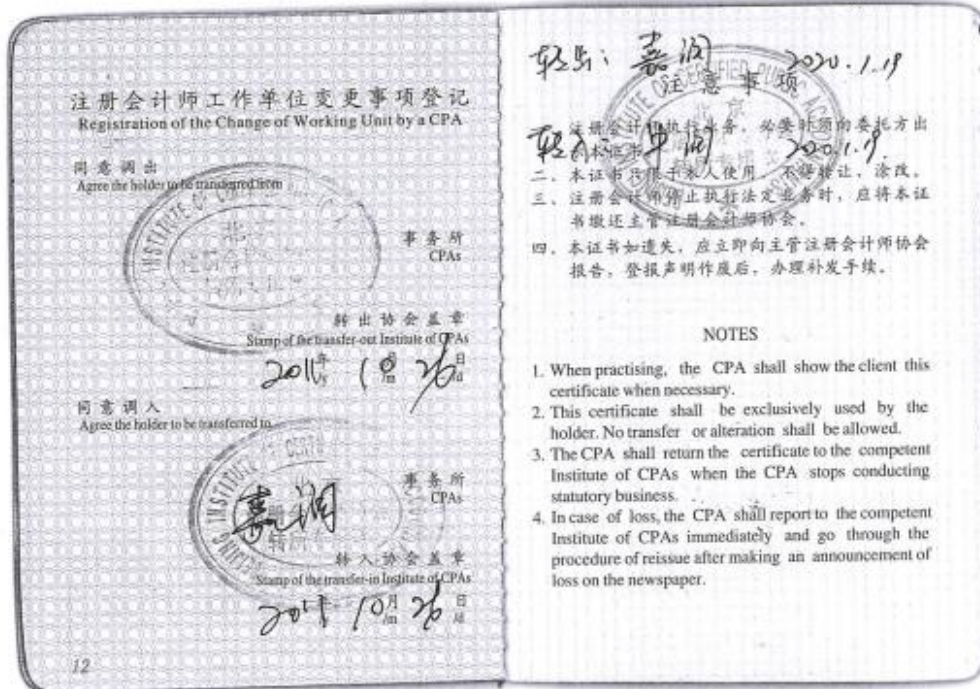 注册会计师工作单位变更事项登记
Registration of the Change of Working Unit by a CPA
同意调出
Agree the holder to be transferred from
事务所
CPAs
转出协会盖章
Stamp of the transfer-out Institute of CPAs
2011年 10月 26日
/y /m /d
同意调入
Agree the holder to be transferred to
嘉润
事务所
CPAs
转入协会盖章
Stamp of the transfer-in Institute of CPAs
2011 10月 26日
/m /d
12
转出：嘉润 2020.1.19
注意事项
一、注册会计师执行业务，必要时须向委托方出
示本证书。
转入： 润 2020.1.19
二、本证书只限于本人使用，不得转让、涂改。
三、注册会计师停止执行法定业务时，应将本证
书缴还主管注册会计师协会。
四、本证书如遗失，应立即向主管注册会计师协会
报告，登报声明作废后，办理补发手续。
NOTES
1. When practising, the CPA shall show the client this
certificate when necessary.
2. This certificate shall be exclusively used by the
holder. No transfer or alteration shall be allowed.
3. The CPA shall return the certificate to the competent
Institute of CPAs when the CPA stops conducting
statutory business.
4. In case of loss, the CPA shall report to the competent
Institute of CPAs immediately and go through the
procedure of reissue after making an announcement of
loss on the newspaper.